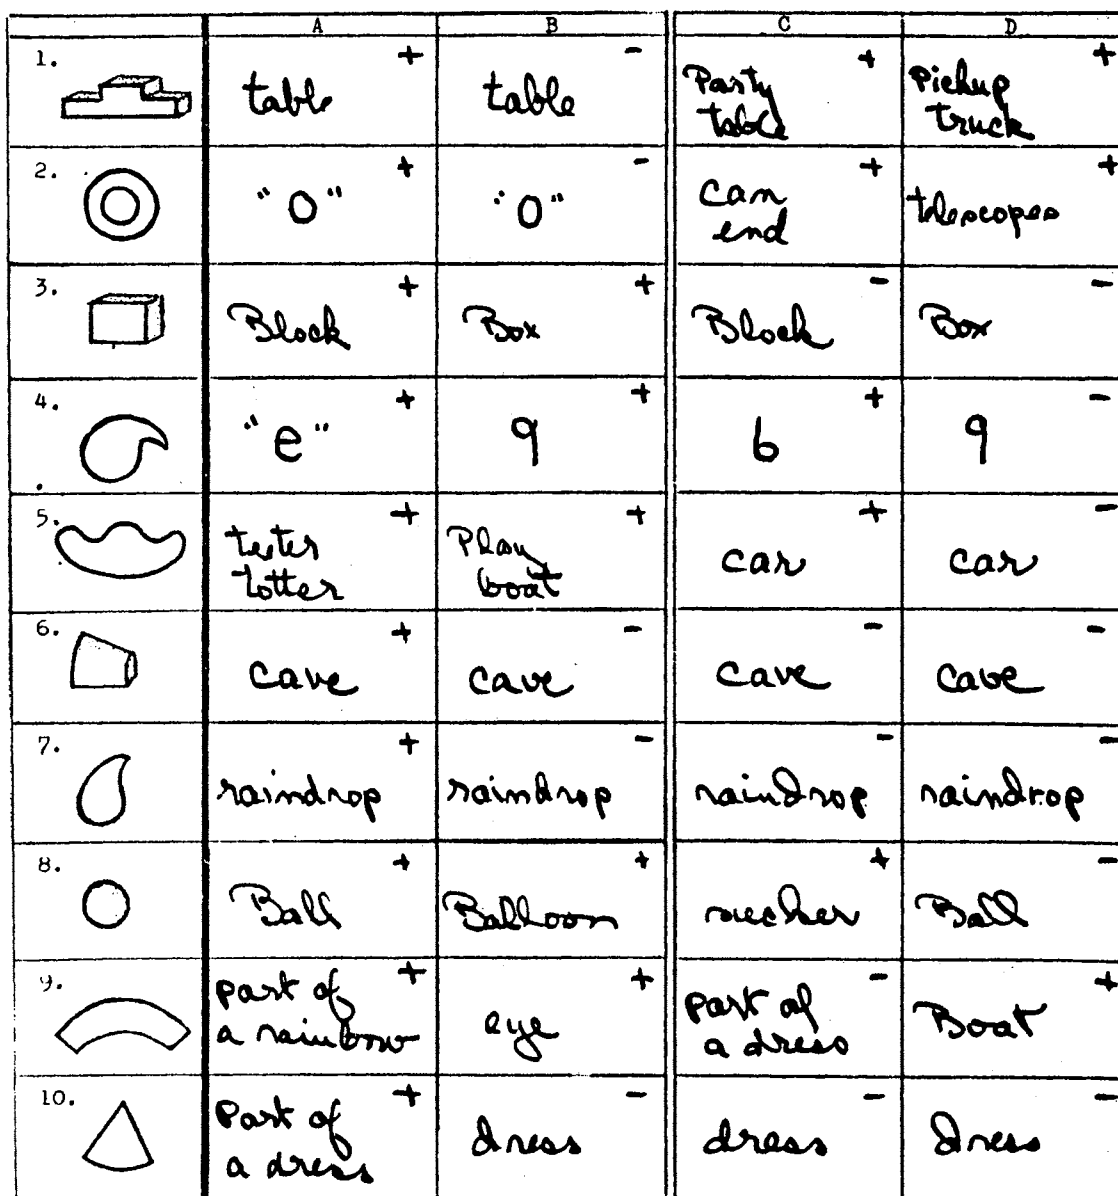 A B C D
1. + - + +
table table Party table Pickup truck
2. + - + +
"O" "O" can end telescopes
3. + + - -
Block Box Block Box
4. + + + -
"e" 9 6 9
5. + + + -
teeter totter Play boat car car
6. + - - -
cave cave cave cave
7. + - - -
raindrop raindrop raindrop raindrop
8. + + + -
Ball Balloon sucker Ball
9. + + - +
part of a rainbow eye part of a dress Boat
10. + - - -
Part of a dress dress dress dress